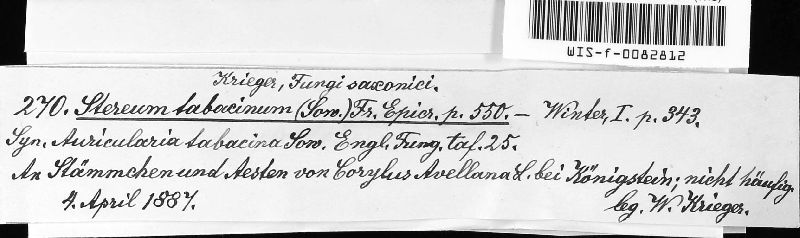 WIS-f-0082812
Krieger, Fungi saxonici.
270. Stereum tabacinum (Sow.) Fr. Epicr. p. 550. — Winter, I. p. 343.
Syn. Auricularia tabacina Sow. Engl. Fung. taf. 25.
An Stämmchen und Aesten von Corylus Avellana L. bei Königstein; nicht häufig.
4. April 1887. leg. W. Krieger.